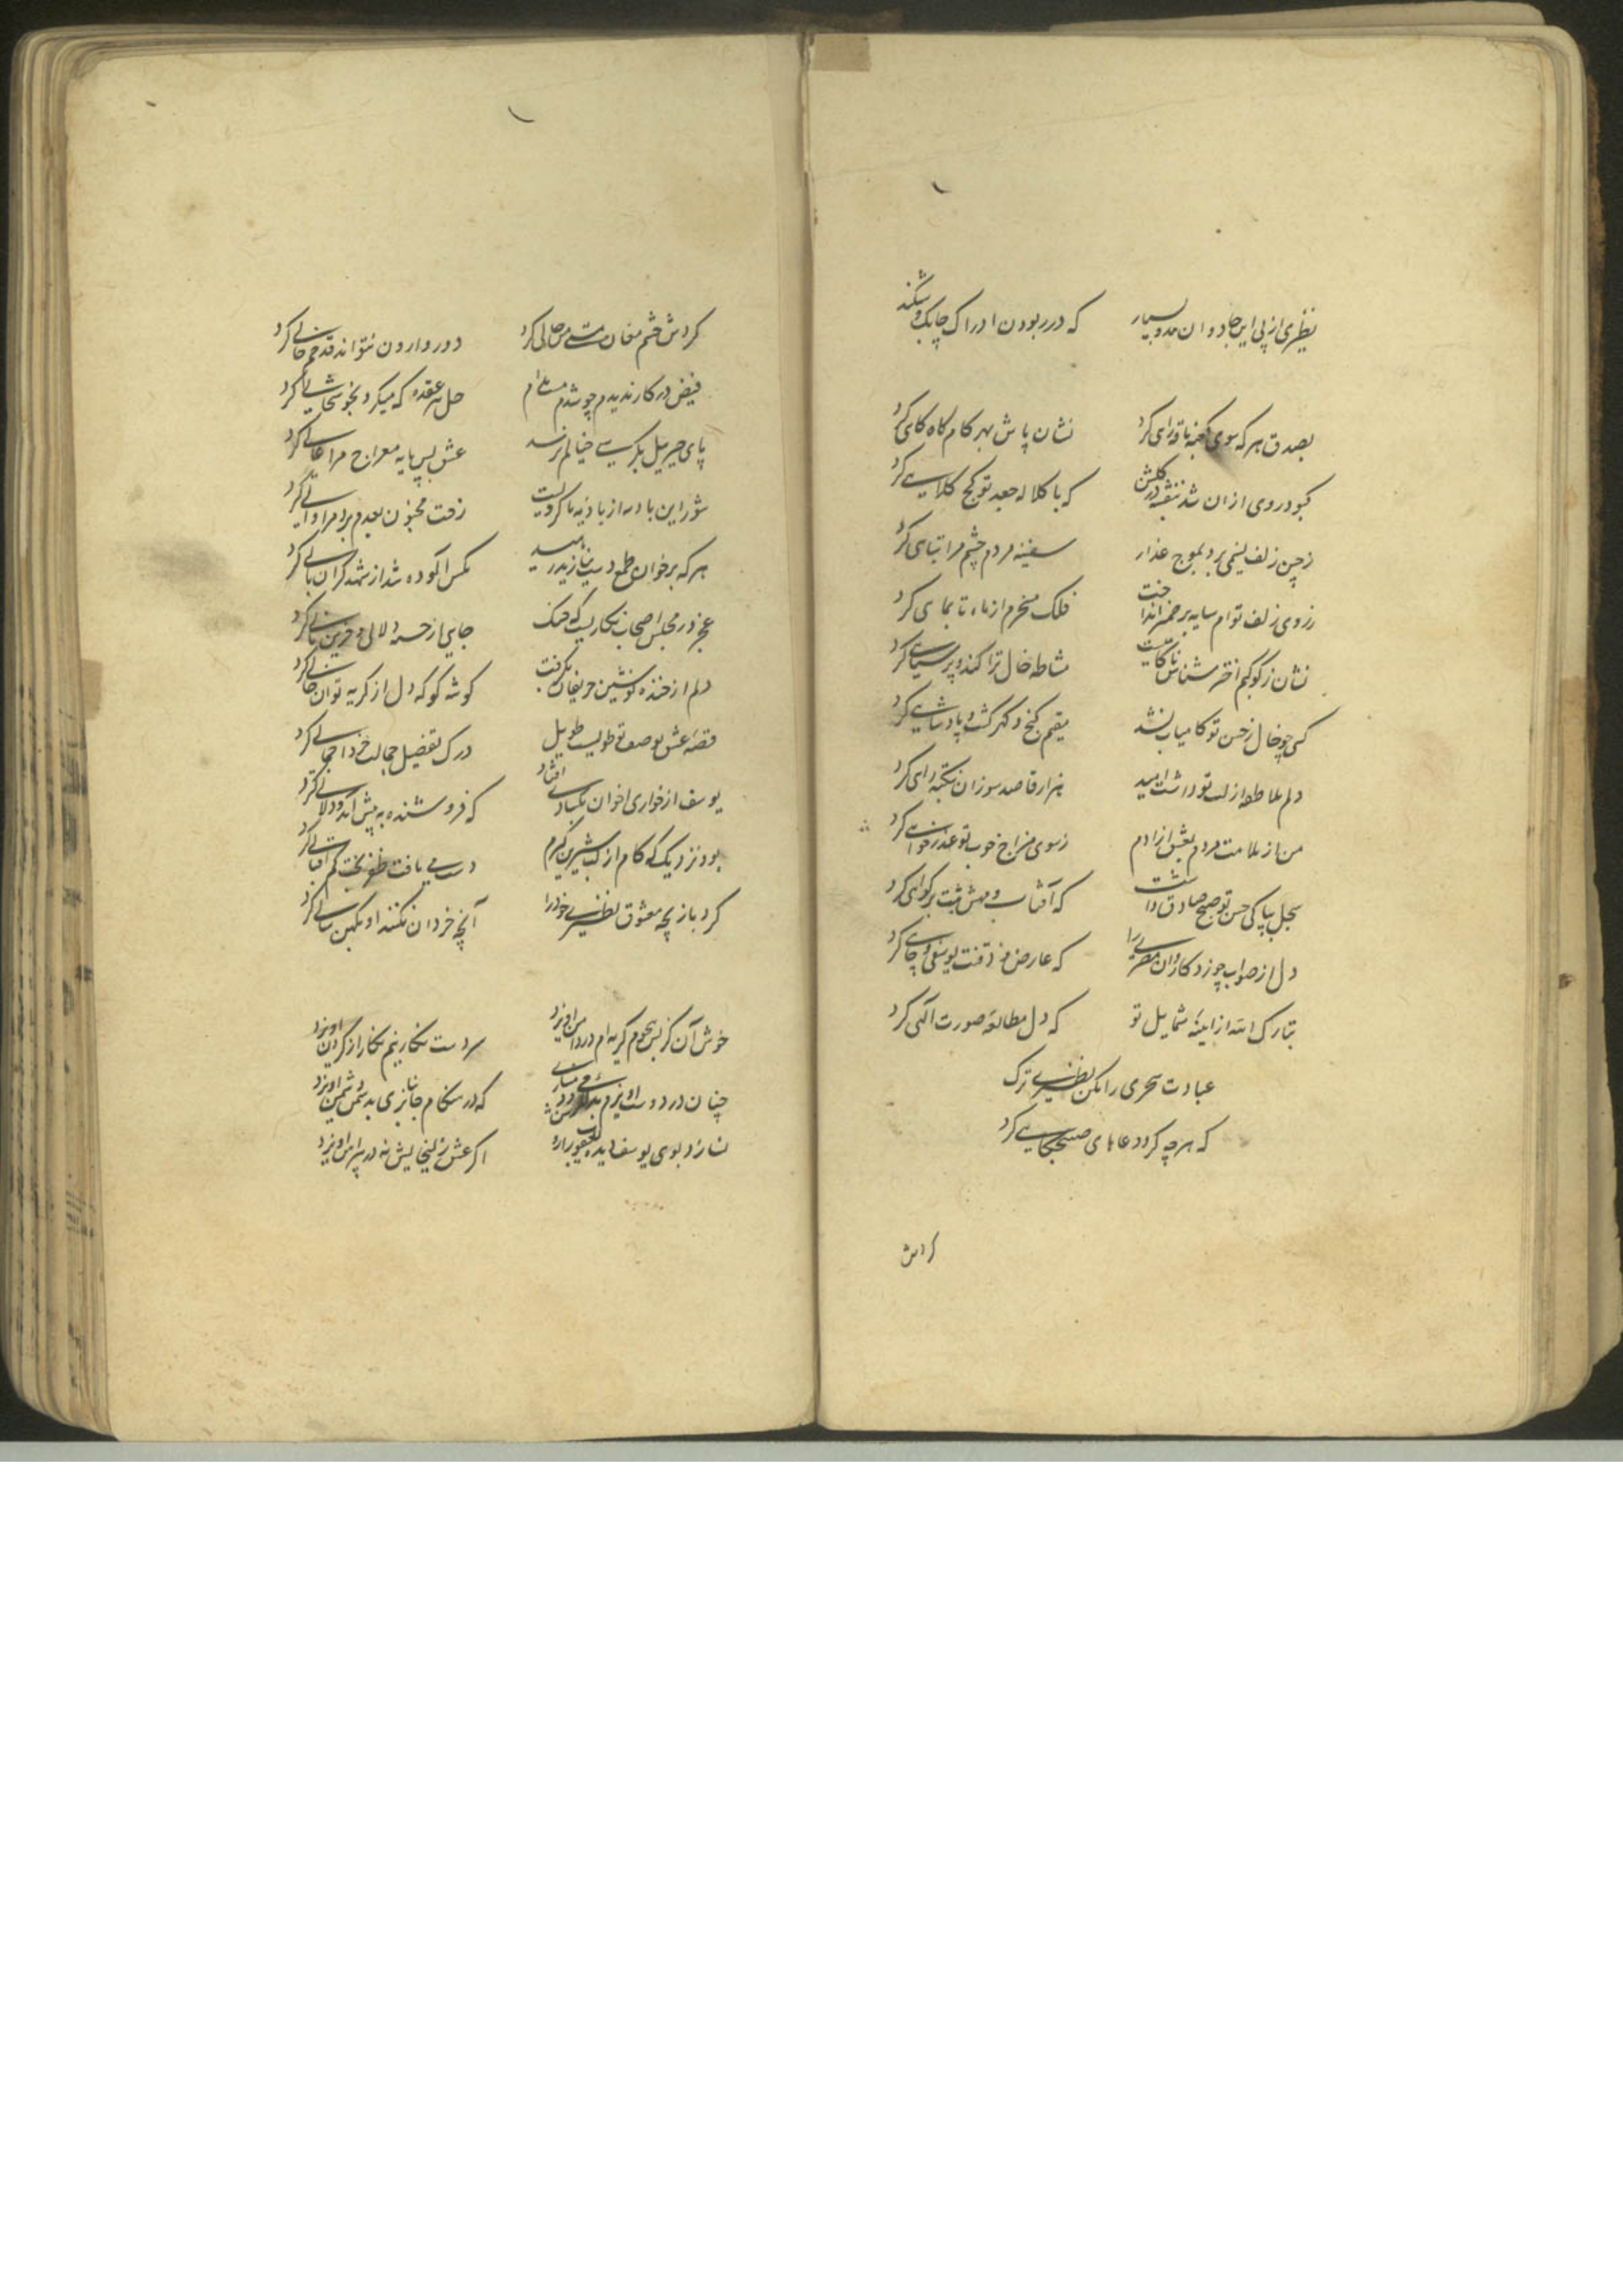 نظیری از پی این جادوان مدو بسیار که در ربودن ادراک چابک و شنکند
بصدق هر که سوی کعبه ناقه رای کرد نشان پاش بهر کام کاه کاهی کرد
کبود روی ازان شد بنفشه در کلشن که با کلاله جعد تو کج کلاهی کرد
ز چین زلف نسیمی برد بموج عذار سفینه مردم چشم مرا تباهی کرد
ز روی زلف توام سایه بر سر انداخت فلک مسخرم از ماه تا بماهی کرد
نشان ز کوکبم اختر شناس مشاطه خال ترا کند و پر سیاهی کرد
کسی چو خال ز حسن تو کامیاب نشد مقیم کنج دکر کشت و پادشاهی کرد
دلم ملاطفه از لب تو داشت امید هزار قاصد سوزان نکته راهی کرد
من از ملامت مردم بعشق ازادم ز سوی مزاج خوب تو عذر خواهی کرد
سجل بپاکی حسن تو صبح صادق داشت که آفتاب و مهش ثبت بر کواهی کرد
دل از صواب چو زد کاروان مصری را که عارض و ذقنت یوسفی و چاهی کرد
تبارک الله از اینه شمایل تو که دل مطالعه صورت آلهی کرد
عبادت سحری را مکن نظیری ترک
که هر چه کرد دعاهای صبحکاهی کرد
کردش
کردش چشم مغان مست می حالی کرد دور وارون نتواند قدحم خالی کرد
فیض در کار ندیدم چو شدم مست مدام حل هر عقده که میکرد بخوشحالی کرد
پای جبریل بکرسی خیالم نرسد عشق پس پایه معراج مرا عالی کرد
شور این بادیه از بادیه ما کرویست رفت مجنون بعدم برد مرا والی کرد
هر که بر خوان طمع دست نیازید رسید مکس آلوده شد از شهد کران بالی کرد
عجز در مجلس اصحاب بکاریست که جای از خسه
دلم از خنده نوشین حریفان نکرفت کوشه کو که دل از کریه توان خالی کرد
قصه عشق بوصف تو طویلست طویل درک تفضیل جمالت خرد اجمالی کرد
یوسف از خواری اخوان بکسادی افتاد که فروشنده به پیش آمد و دلالی کرد
بود نزدیک که کام از لب شیرین کیرم دست می یافت ظفر بخت کم اقبالی کرد
کرد بازیچه معشوق نظیری خود را آنچه خردان نکنند او بکهن سالی کرد
خوش آن کز بس هجوم کریه ام در دامن اویزد سر دست نکارینم نکار از کردن اویزد
چنان در دوست اویزم که در هنکام جانبازی بدشمن دشمن اویزد
نسازد بوی یوسف دیده یعقوب را روشن اکر عشق زلیخایش نه در پیراهن اویزد